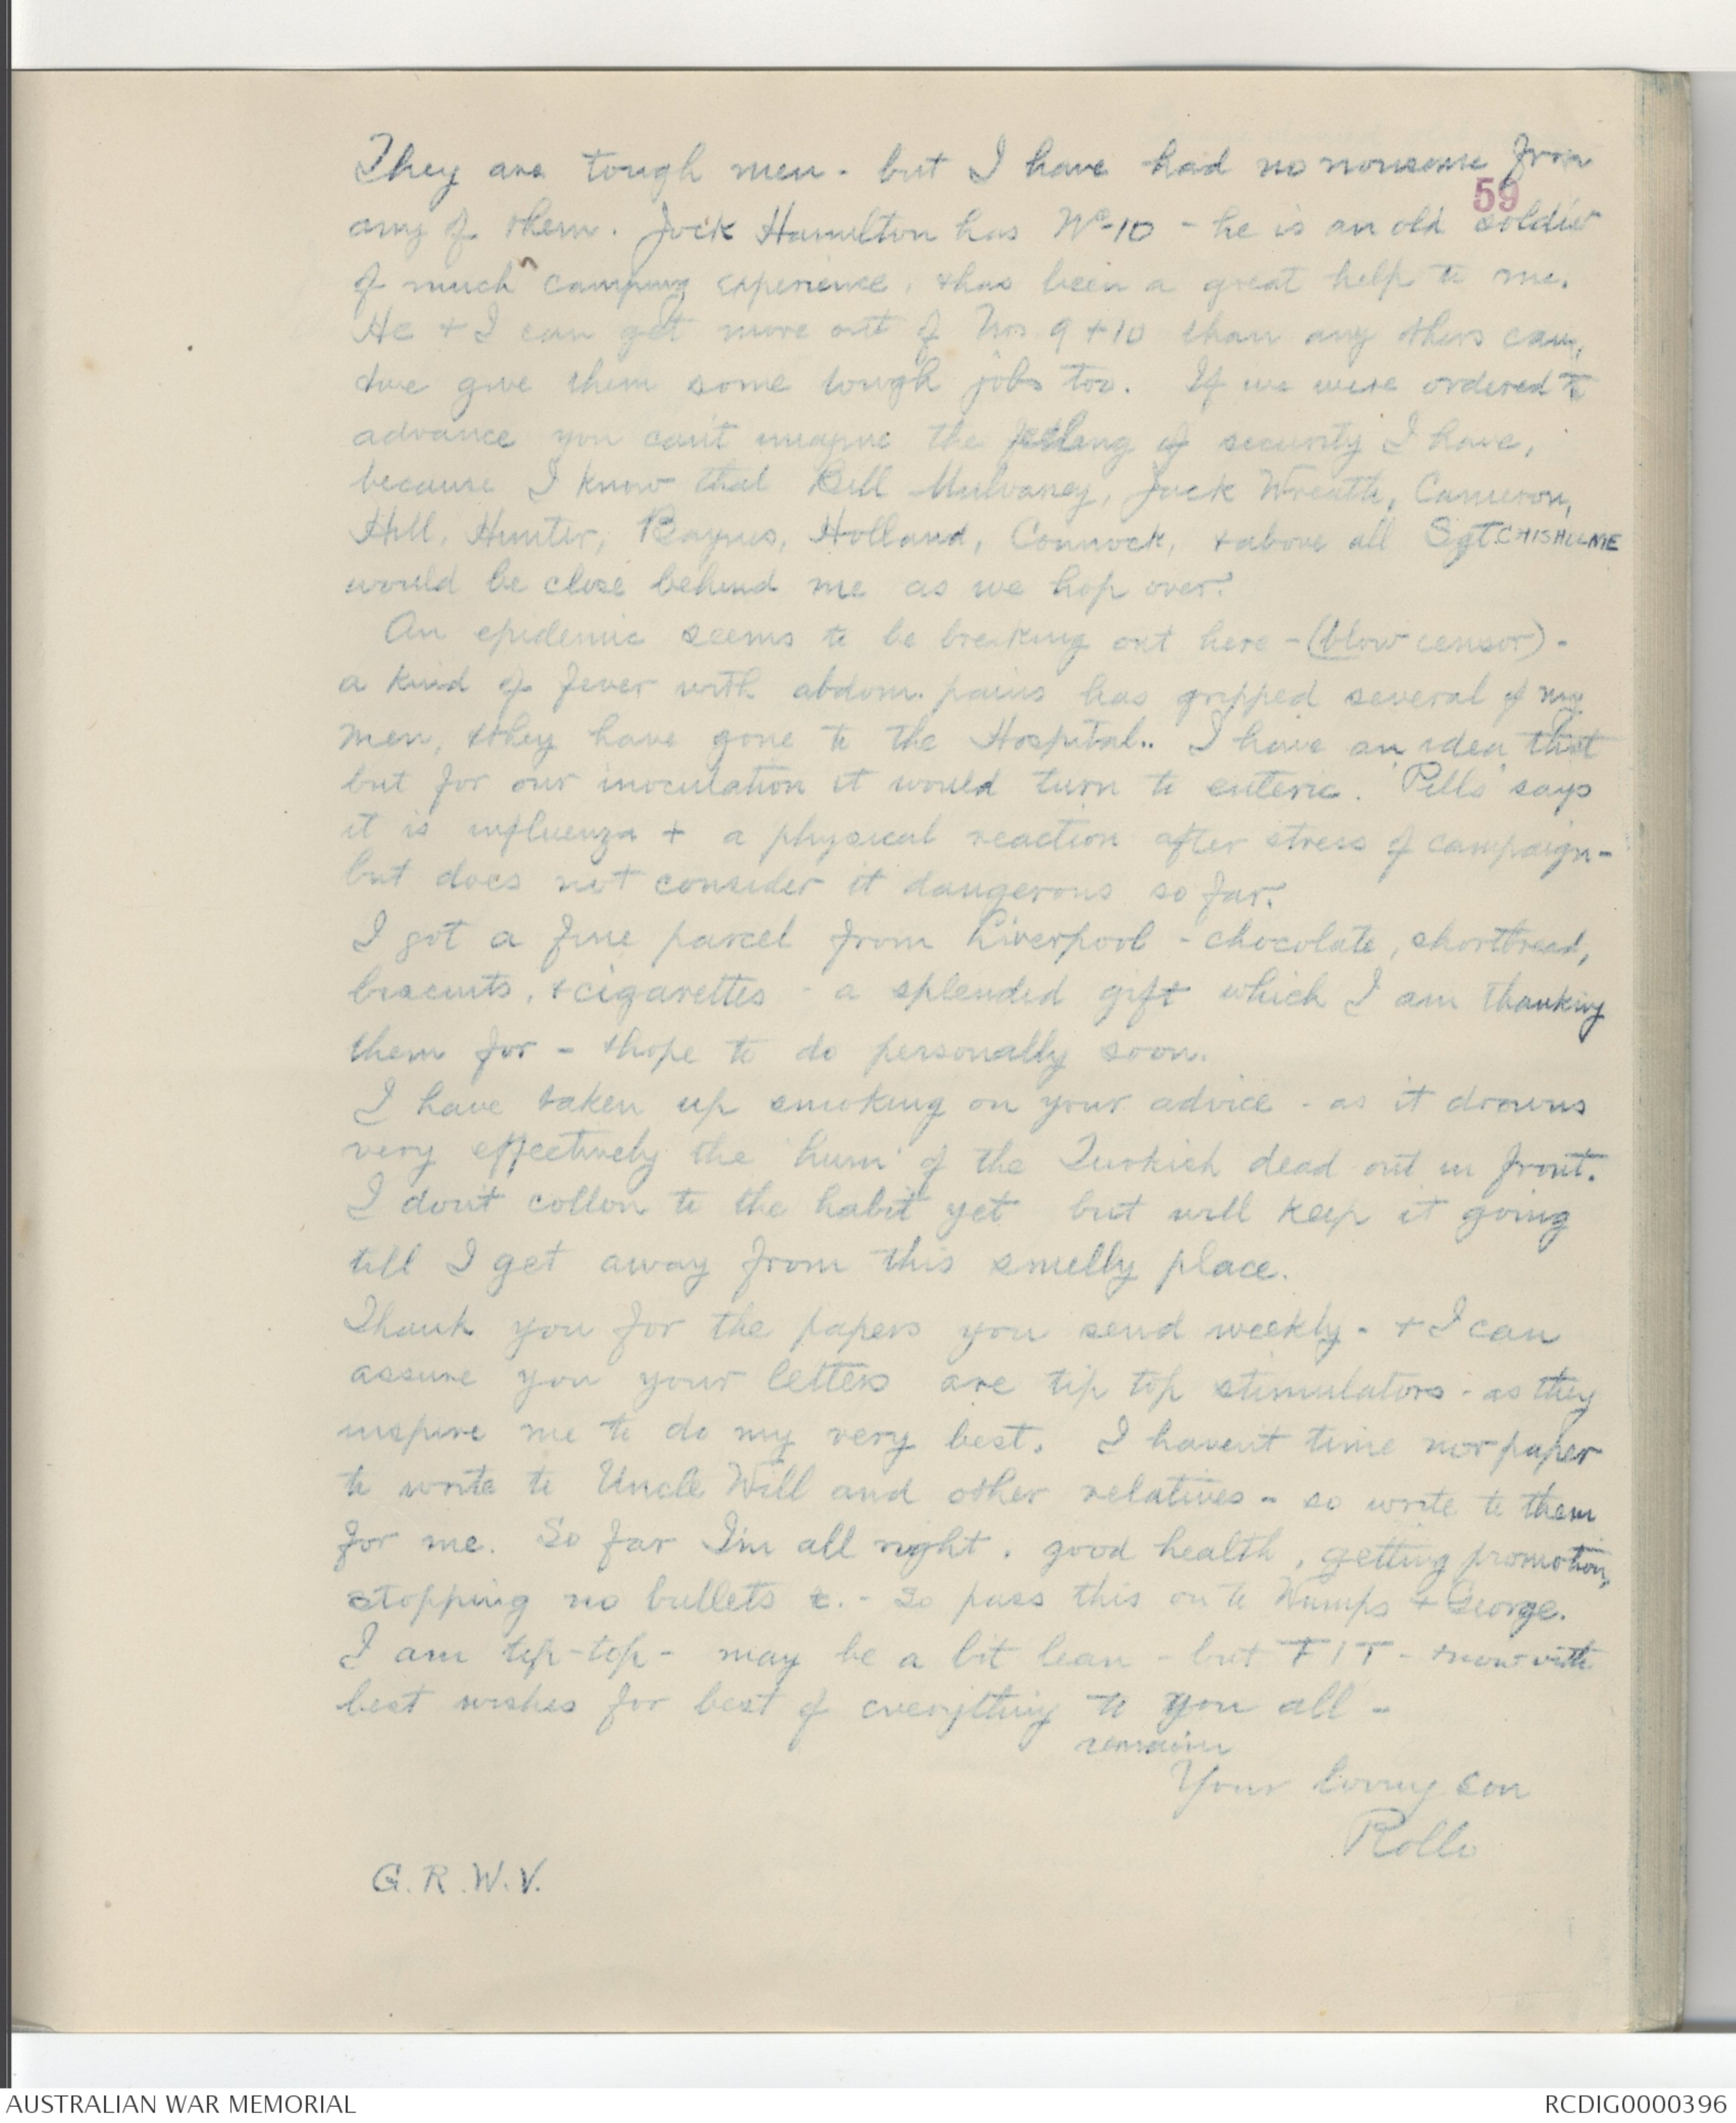 They are tough men - but I have had no nonsense from
59
any of them. Jock Hamilton has No 10 - he is an old soldier
of much camping experience, & has been a great help to me.
He & I can get more out of Nos 9 & 10 than any others can,
& we give them some tough jobs too. If we were ordered to
advance you can't imagine the feeling of security I have,
because I know that Bill Mulvaney, Jack Wreath, Cameron,
Hill, Hunter, Baynes, Holland, Connock, & above all Sgt. CHISHULME
would be close behind me as we hop over.
An epidemic seems to be breaking out here - (blow censor) -
a kind of fever with abdom. pains has gripped several of my
men, & they have gone to the Hospital.. I have an idea that
but for our inoculation it would turn to enteric. 'Pills' says
it is influenza + a physical reaction after stress of campaign -
but does not consider it dangerous so far.
I got a fine parcel from Liverpool - chocolate, shortbread,
biscuits, & cigarettes - a splended gift which I am thanking
them for - & hope to do personally soon.
I have taken up smoking on your advice - as it drowns
very effectively the 'hum' of the Turkish dead out in front.
I don't cotton to the habit yet but will keep it going
till I get away from this smelly place.
Thank you for the papers you send weekly - & I can
assure you your letters are tip top stimulators - as they
inspire me to do my very best. I haven't time nor paper
to write to Uncle Will and other relatives - so write to them
for me. So far I'm all right, good health, getting promotion,
stopping no bullets &. - So pass this on to Wumps & George.
I am tip-top - may be a bit lean - but FIT - & now with
best wishes for best of everything to you all -
remain
Your loving son
Rollo
G.R.W.V.
AUSTRALIAN WAR MEMORIAL
RCDIG0000396